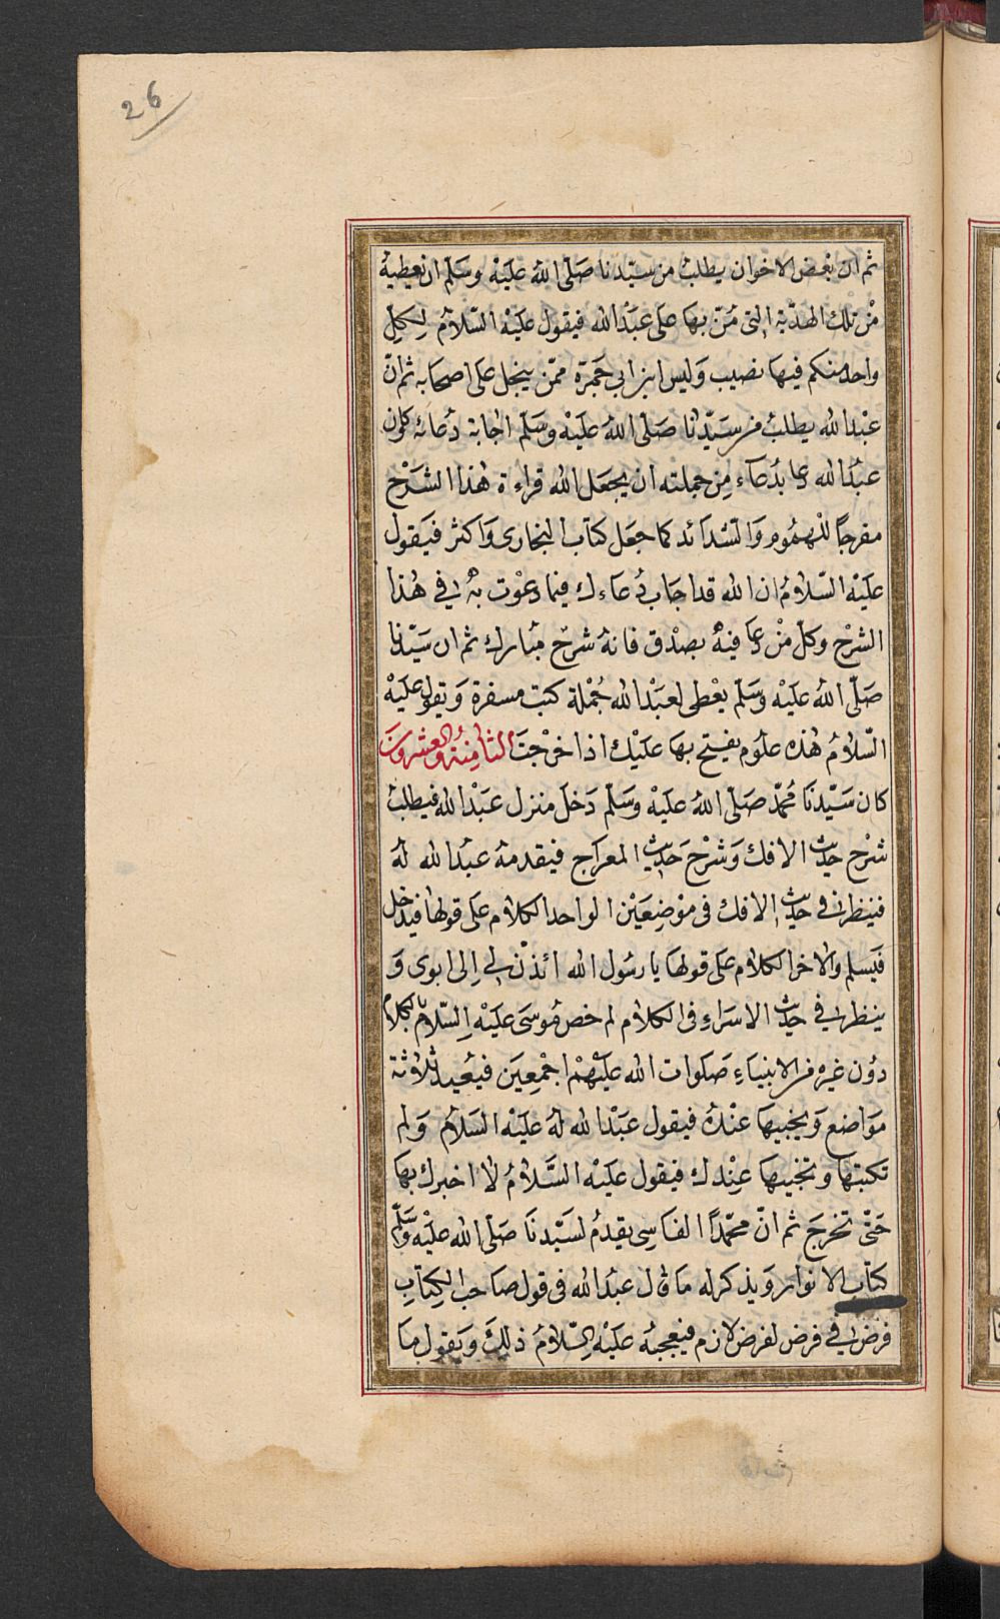 26
ثم ان بعض الاخوان يطلب من سيدنا صَلّى اللهُ عَليْه وسَلّم ان يعطيهُ
مْن تلك الهدية التى مَنّ بها على عبْد الله فيقول عليْه السّلامُ لِكلِ
واحد منكم فيها نصيب وَليس ابن ابي جَمرَة ممّن يبخل على اصحابه ثم انّ
عبْد الله يطلبُ من سَيّدنا صَلّى اللهُ عَليْه وسَلّم اجابة دُعائه كلون
عبْدَ الله دعا بدُعآء مِن جملته ان يجعَل الله قراءة هٰذا الشرْح
مفرجًا للهمُوم وَالشدآئد كما جعَل كتاب البخارى وَاكثر فيَقول
عليْه السّلامُ ان الله قد اجَاب دُعَاءك فيما دعوْت بهِ في هٰذا
الشرْح وكل مْن دعا فيهْ بصدْق فانهُ شرحْ مبَارك ثم ان سَيّدنا
صَلّى اللهُ عَليْه وسَلّم يعْطى لعبْد الله جُمْلة كتب مسفرة وَيقول عليْه
السّلامُ هٰذه علُوم يفتح بها عليْك اذا خرْجتَ الثامِنةُ والعشرونَ
كان سَيّدنَا مُحمّد صَلّى اللهُ عَليْه وسَلّم دَخلَ منزل عبْد الله فيطلبُ
شرْح حديث الافك وَشرْحَ حَديث المعرَاج فيقدمهُ عبدُ الله لهُ
فينظر في حديث الافك فى موْضعَيْن الواحد الكلام على قولها فيدخل
فيَسلم والاخر الكلام على قولهَا يا رسُول الله ائذنْ لي اِلى ابوى وَ
ينظر في حديث الاسرَاءِ فى الكلام لم خص مُوسَى عليْه السّلام بالكلام
دوُن غيره من الانبيَاءِ صَلوات الله عليْهمْ اجْمعِين فيعُيد ثلاثة
مَواضع وَيخبيهَا عنْدهُ فيقول عبْد الله لهُ عليْه السَلامُ وَلم
تكتبْها وَتخبيهَا عِنْدك فيقول عليْه السَّلامُ لا اخبرك بها
حَتّى تخرجَ ثم انّ محمّدًا الفَاسِى يقدمُ لسَيّدنَا صَلّى الله عليْه وَسَلّم
كتاب الانوار وَيذكر له مَا قال عبدُ الله فى قول صاحب الكِتابِ
فرَض في فرض لفرض لازم فيعجبهُ عليْه السّلامُ ذلكَ وَيَقول مَا